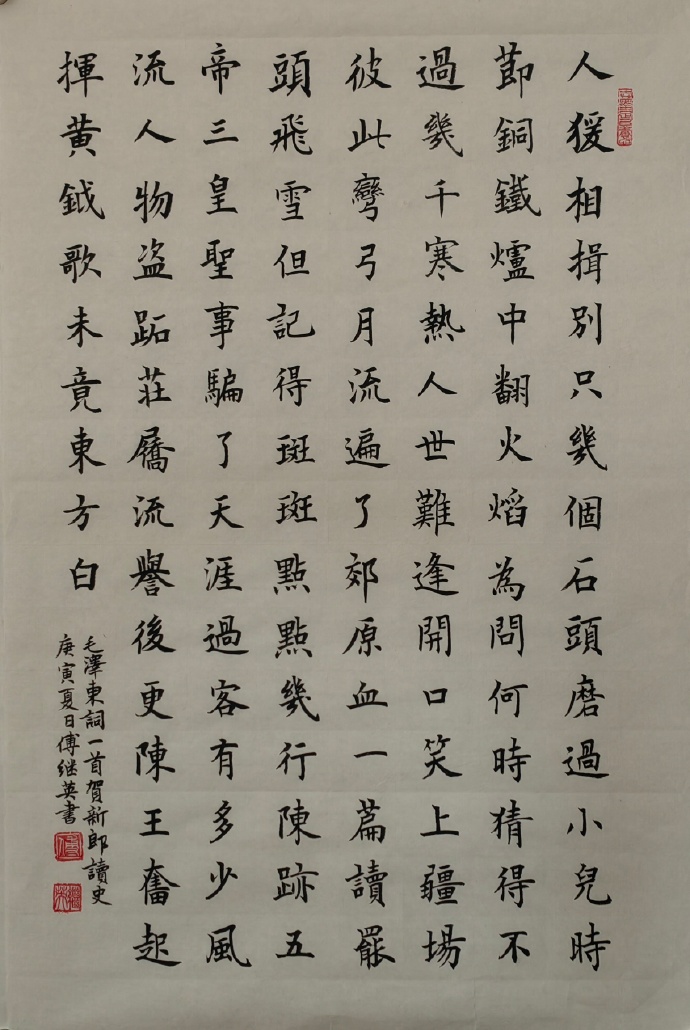 人猨相揖別只幾個石頭磨過小兒時
節銅鐵爐中翻火熖為問何時猜得不
過幾千寒熱人世難逢開口笑上疆場
彼此彎弓月流遍了郊原血一篇讀罷
頭飛雪但記得斑斑點點幾行陳跡五
帝三皇聖事騙了天涯過客有多少風
流人物盗跖莊屩流譽後更陳王奮起
揮黄鉞歌未竟東方白
毛澤東詞一首賀新郎讀史
庚寅夏日傅继英書